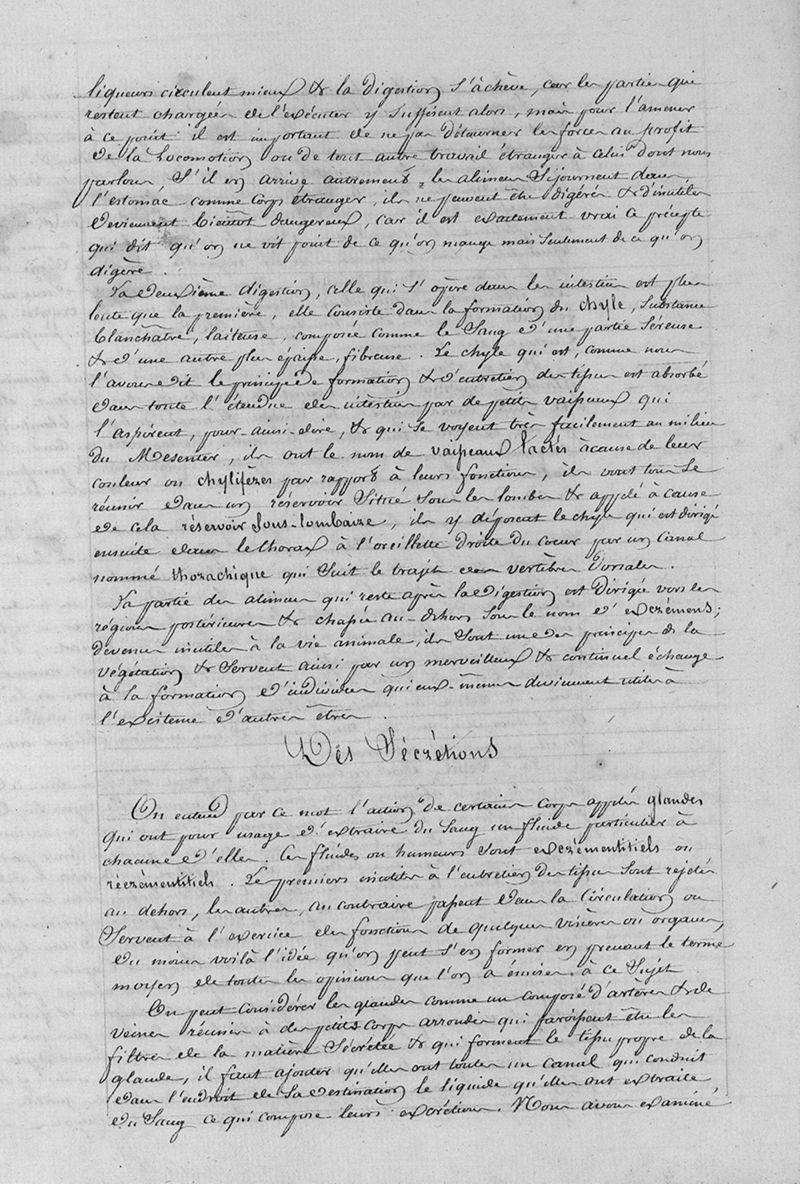 liqueurs circulent mieux & la digestion s'achève, car les parties qui
restent chargées de l'exécuter y suffisent alors, mais pour l'amener
à ce point il est important de ne pas détourner les forces au profit
de la Locomotion ou de tout autre travail étranger à celui dont nous
parlons, s'il en arrive autrement, les alimens séjournent dans
l'estomac comme corps étranger, ils ne peuvent être digérés & d'inutiles
deviennent bientôt dangereux, car il est exactement vrai ce précepte
qui dit qu'on ne vit point de ce qu'on mange mais seulement de ce qu'on
digère.
La deuxième digestion, celle qui s'opère dans les intestins est plus
lente que la première, elle consiste dans la formation du chyle, substance
blanchatre, laiteuse, composée comme le sang d'une partie séreuse
& d'une autre plus épaisse, fibreuse. Le chyle qui est, comme nous
l'avons dit le principe de formation & d'entretien des tissus est absorbé
dans toute l'étendue des intestins par de petits vaisseaux qui
l'aspirent, pour-ainsi-dire, & qui se voyent très facilement au milieu
du Mesenter, ils ont le nom de vaisseaux lactés à cause de leur
couleur ou chylifères par rapport à leurs fonctions, ils vont tous se
réunir dans un réservoir situé sous les lombes & appelé à cause
de cela réservoir sous-lombaire, ils y déposent le chyle qui est dirigé
ensuite dans le thorax à l'oreillette droite du coeur par un canal
nommé thorachique qui suit le trajet des vertèbres dorsales.
La partie des alimens qui reste après la digestion est dirigée vers les
régions postérieures & chassée au-dehors sous le nom d'excrémens;
devenus inutiles à la vie animale, ils sont un des principes de la
végétation & servent ainsi par un merveilleux & continuel échange
à la formation d'individus qui eux-mêmes deviennent utiles à
l'existence d'autres êtres.
Des Sécrétions
On entend par ce mot l'action de certains corps appelés glandes
qui ont pour usage d'extraire du sang un fluide particulier à
chacune d'elles. Ces fluides ou humeurs sont excrémentitiels ou
récrémentitiels. Les premiers inutiles à l'entretien des tissus sont rejetés
au dehors, les autres, au contraire passent dans la circulation ou
servent à l'exercice des fonctions de quelques viscères ou organes,
du moins voilà l'idée qu'on peut s'en former en prenant le terme
moyen de toutes les opinions que l'on a émises à ce sujet
On peut considérer les glandes comme un composé d'artères & de
veines réunies à des petits corps arrondis qui paroissent être les
filtres de la matière sécrétée & qui forment le tissu propre de la
glande, il faut ajouter qu'elles ont toutes un canal qui conduit
dans l'endroit de sa destination le liquide qu'elles ont extraite
du sang ce qui compose leurs excrétions. Nous avons examiné